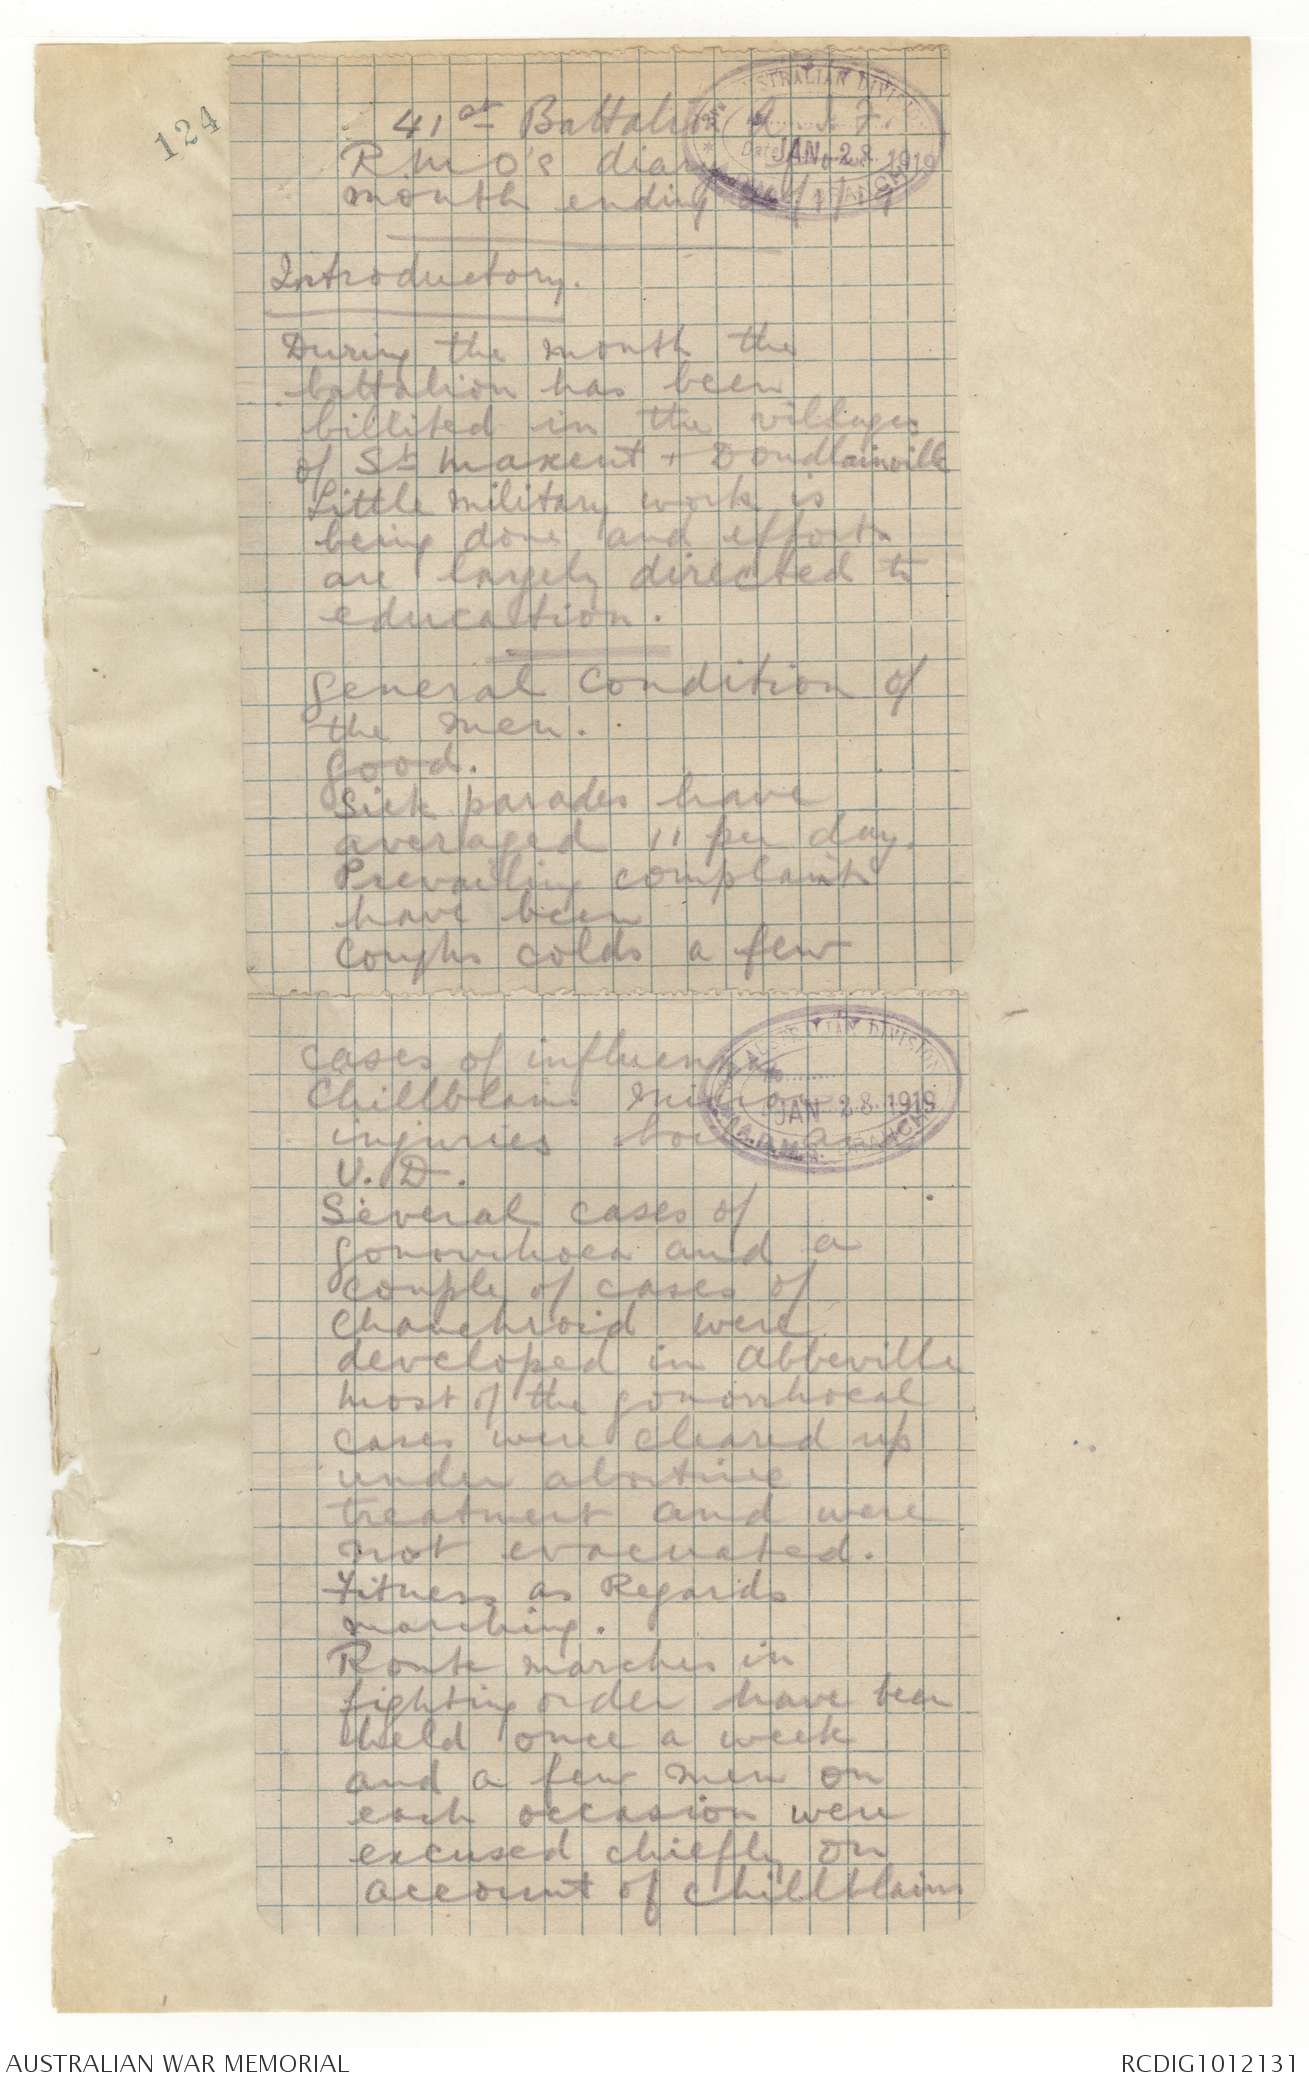 124
41st Battalion A.I.F.
R.M.O's diary for
month ending
AUSTRALIAN DIVISION
JAN 28 1919
Introductory.
During the month the
battalion has been
billited in the villages
of St Maxent + Doudlainville
Little military work is
being done and efforts
are largely directed to
education.
General condition of
the men.
Good.
Sick parades have
averaged 11 per day.
Prevailing complaints
have been
Coughs colds a few
cases of influenza
Chillblains minor
injuries and
V.D.
AUSTRALIAN DIVISION
JAN 28 1919
A.D.M.S. BRANCH
Several cases of
gonorrhoea and a
couple of cases of
chanchroid were
developed in Abbeville
most of the gonorrhoeal
cases were cleared up
under abortive
treatment and were
not evacuated.
Fitness as Regards
marching.
Route marches in
fighting order have been
held once a week
and a few men on
each occasion were
excused chiefly on
account of chillblains
AUSTRALIAN WAR MEMORIAL
RCDIG1012131